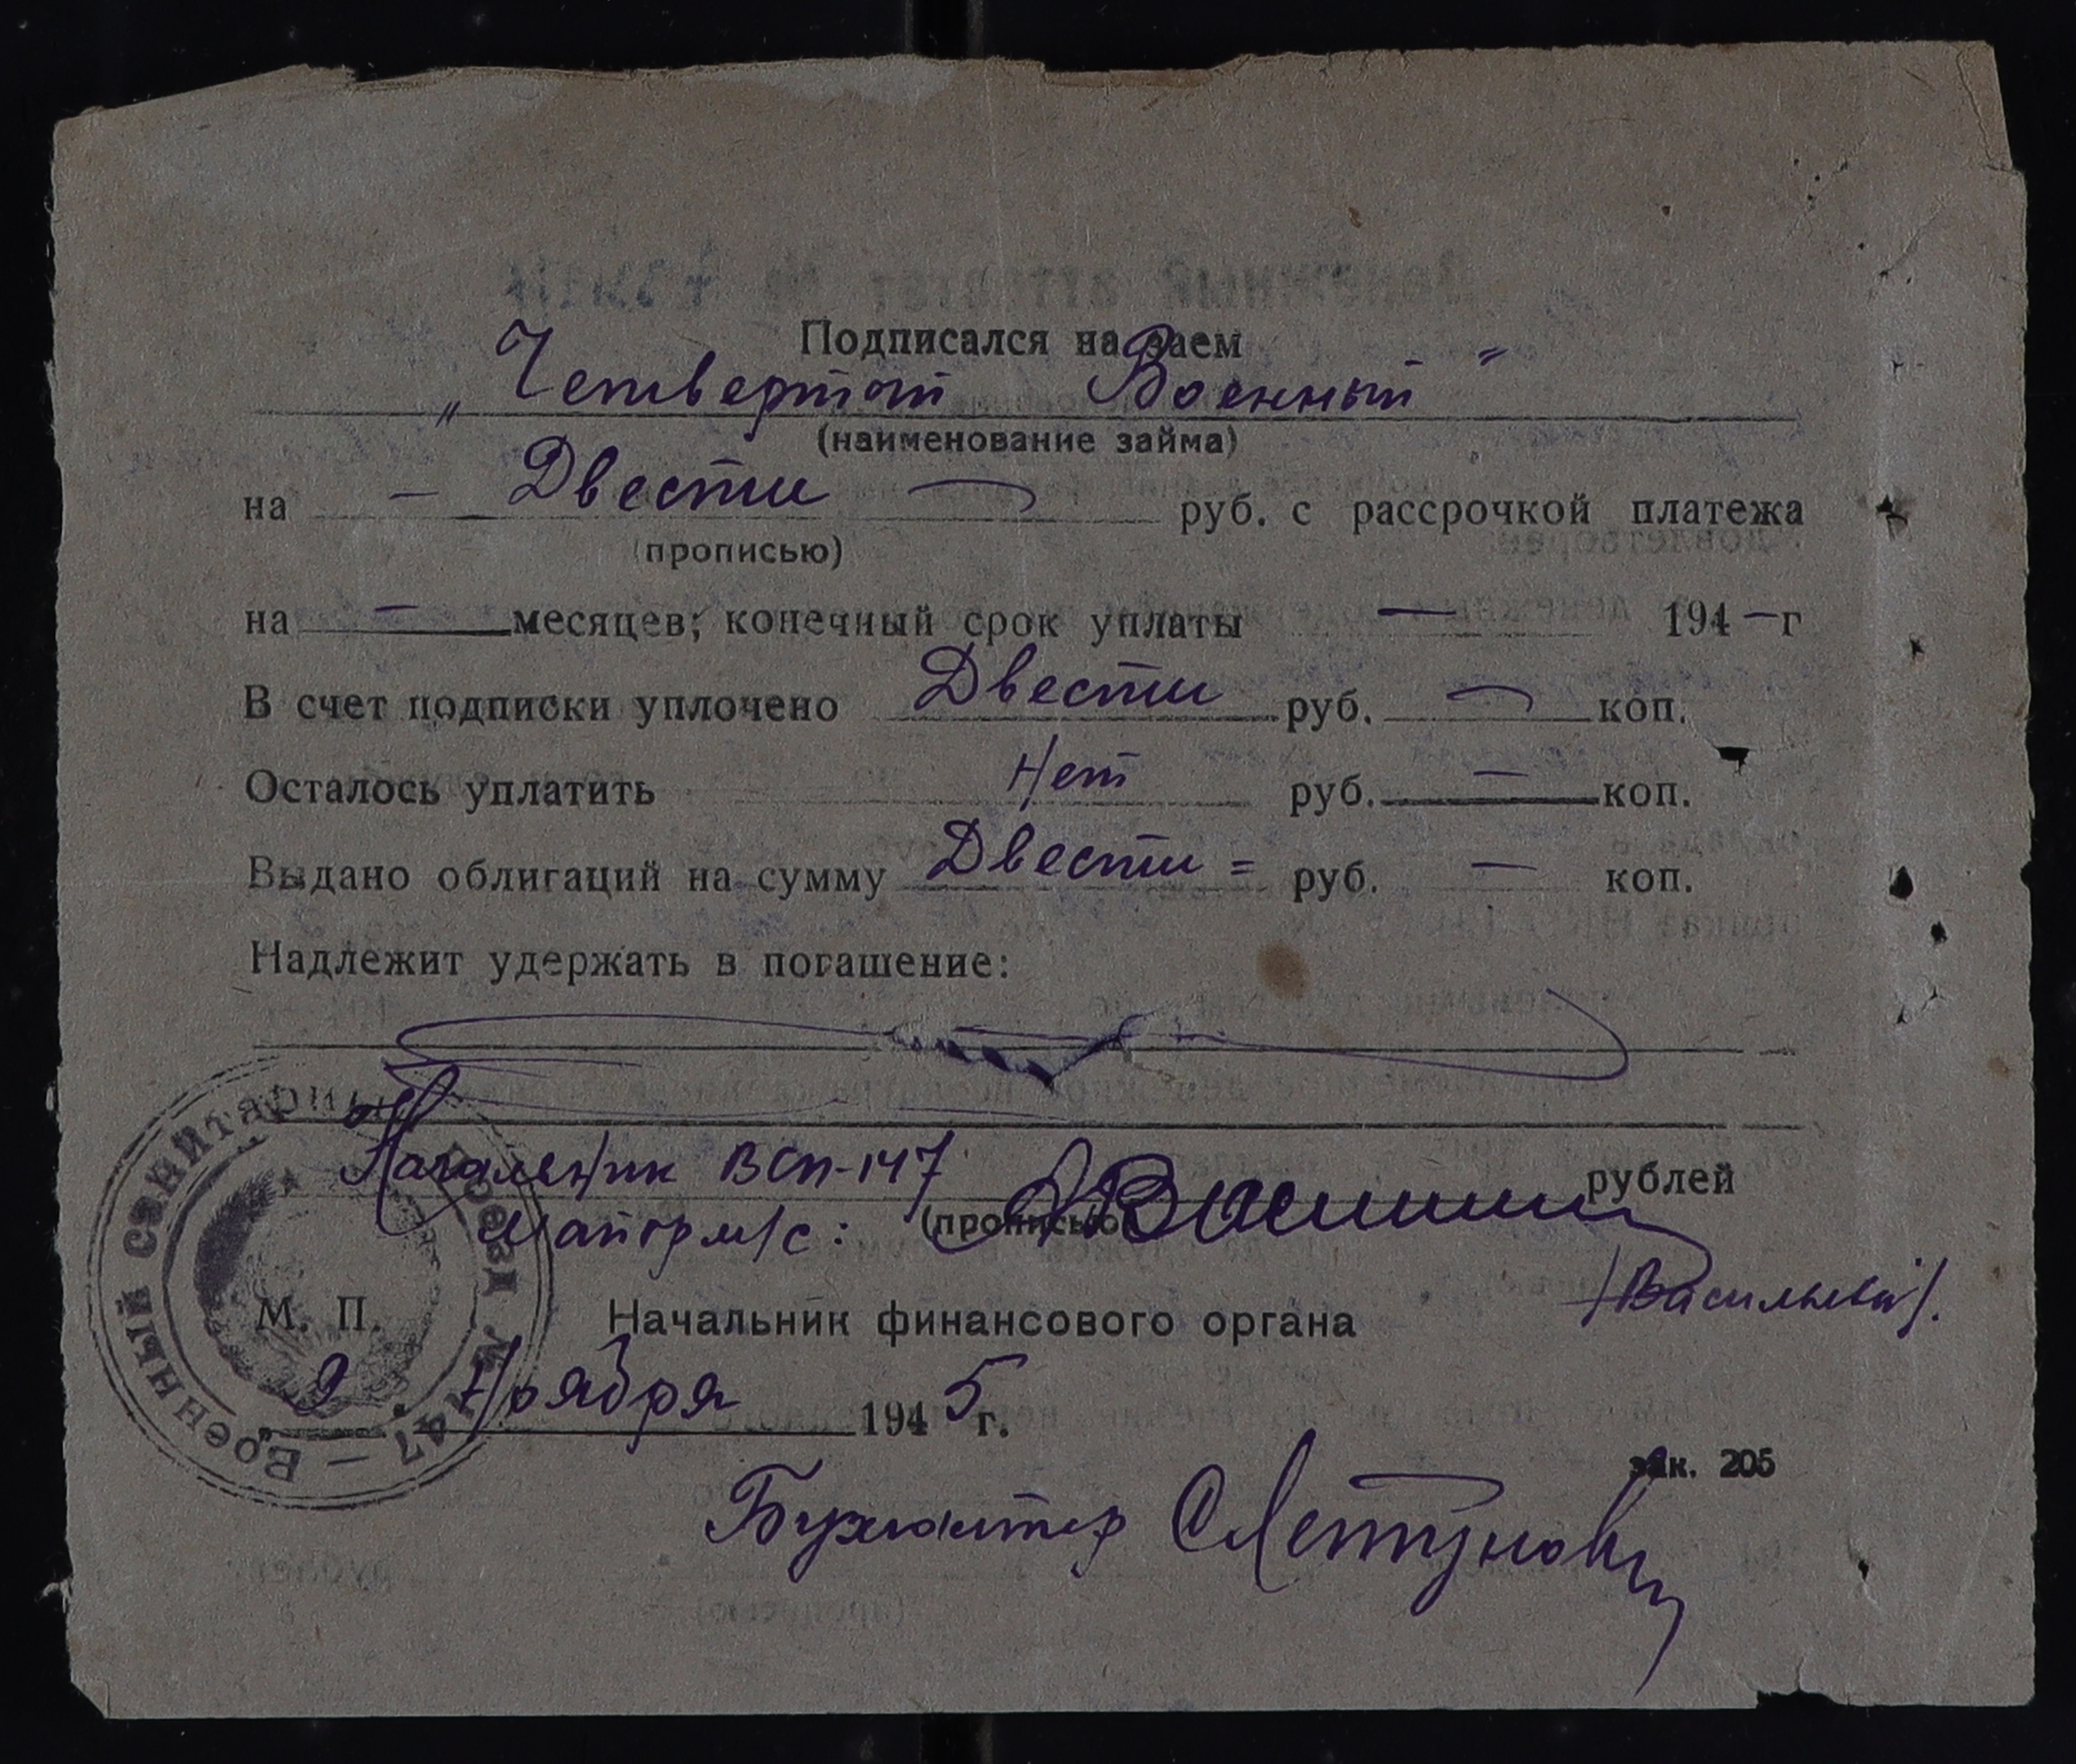 Подписался на заем
„Четвертый Военный"
(наименование займа)
на — Двести — руб. с рассрочкой платежа
(прописью)
на — месяцев; конечный срок уплаты — 194 — г
В счет подписки уплочено Двести руб. — коп.
Осталось уплатить Нет руб. — коп.
Выдано облигаций на сумму Двести = руб. — коп.
Надлежит удержать в погашение:
Начальник ВСП-147
рублей
Майор м/с:
(прописью)
/Васильев/.
М. П.
Начальник финансового органа
„ 9 Ноября 1945 г.
зак. 205
Бухгалтер
Военный санитарный поезд № 147 —